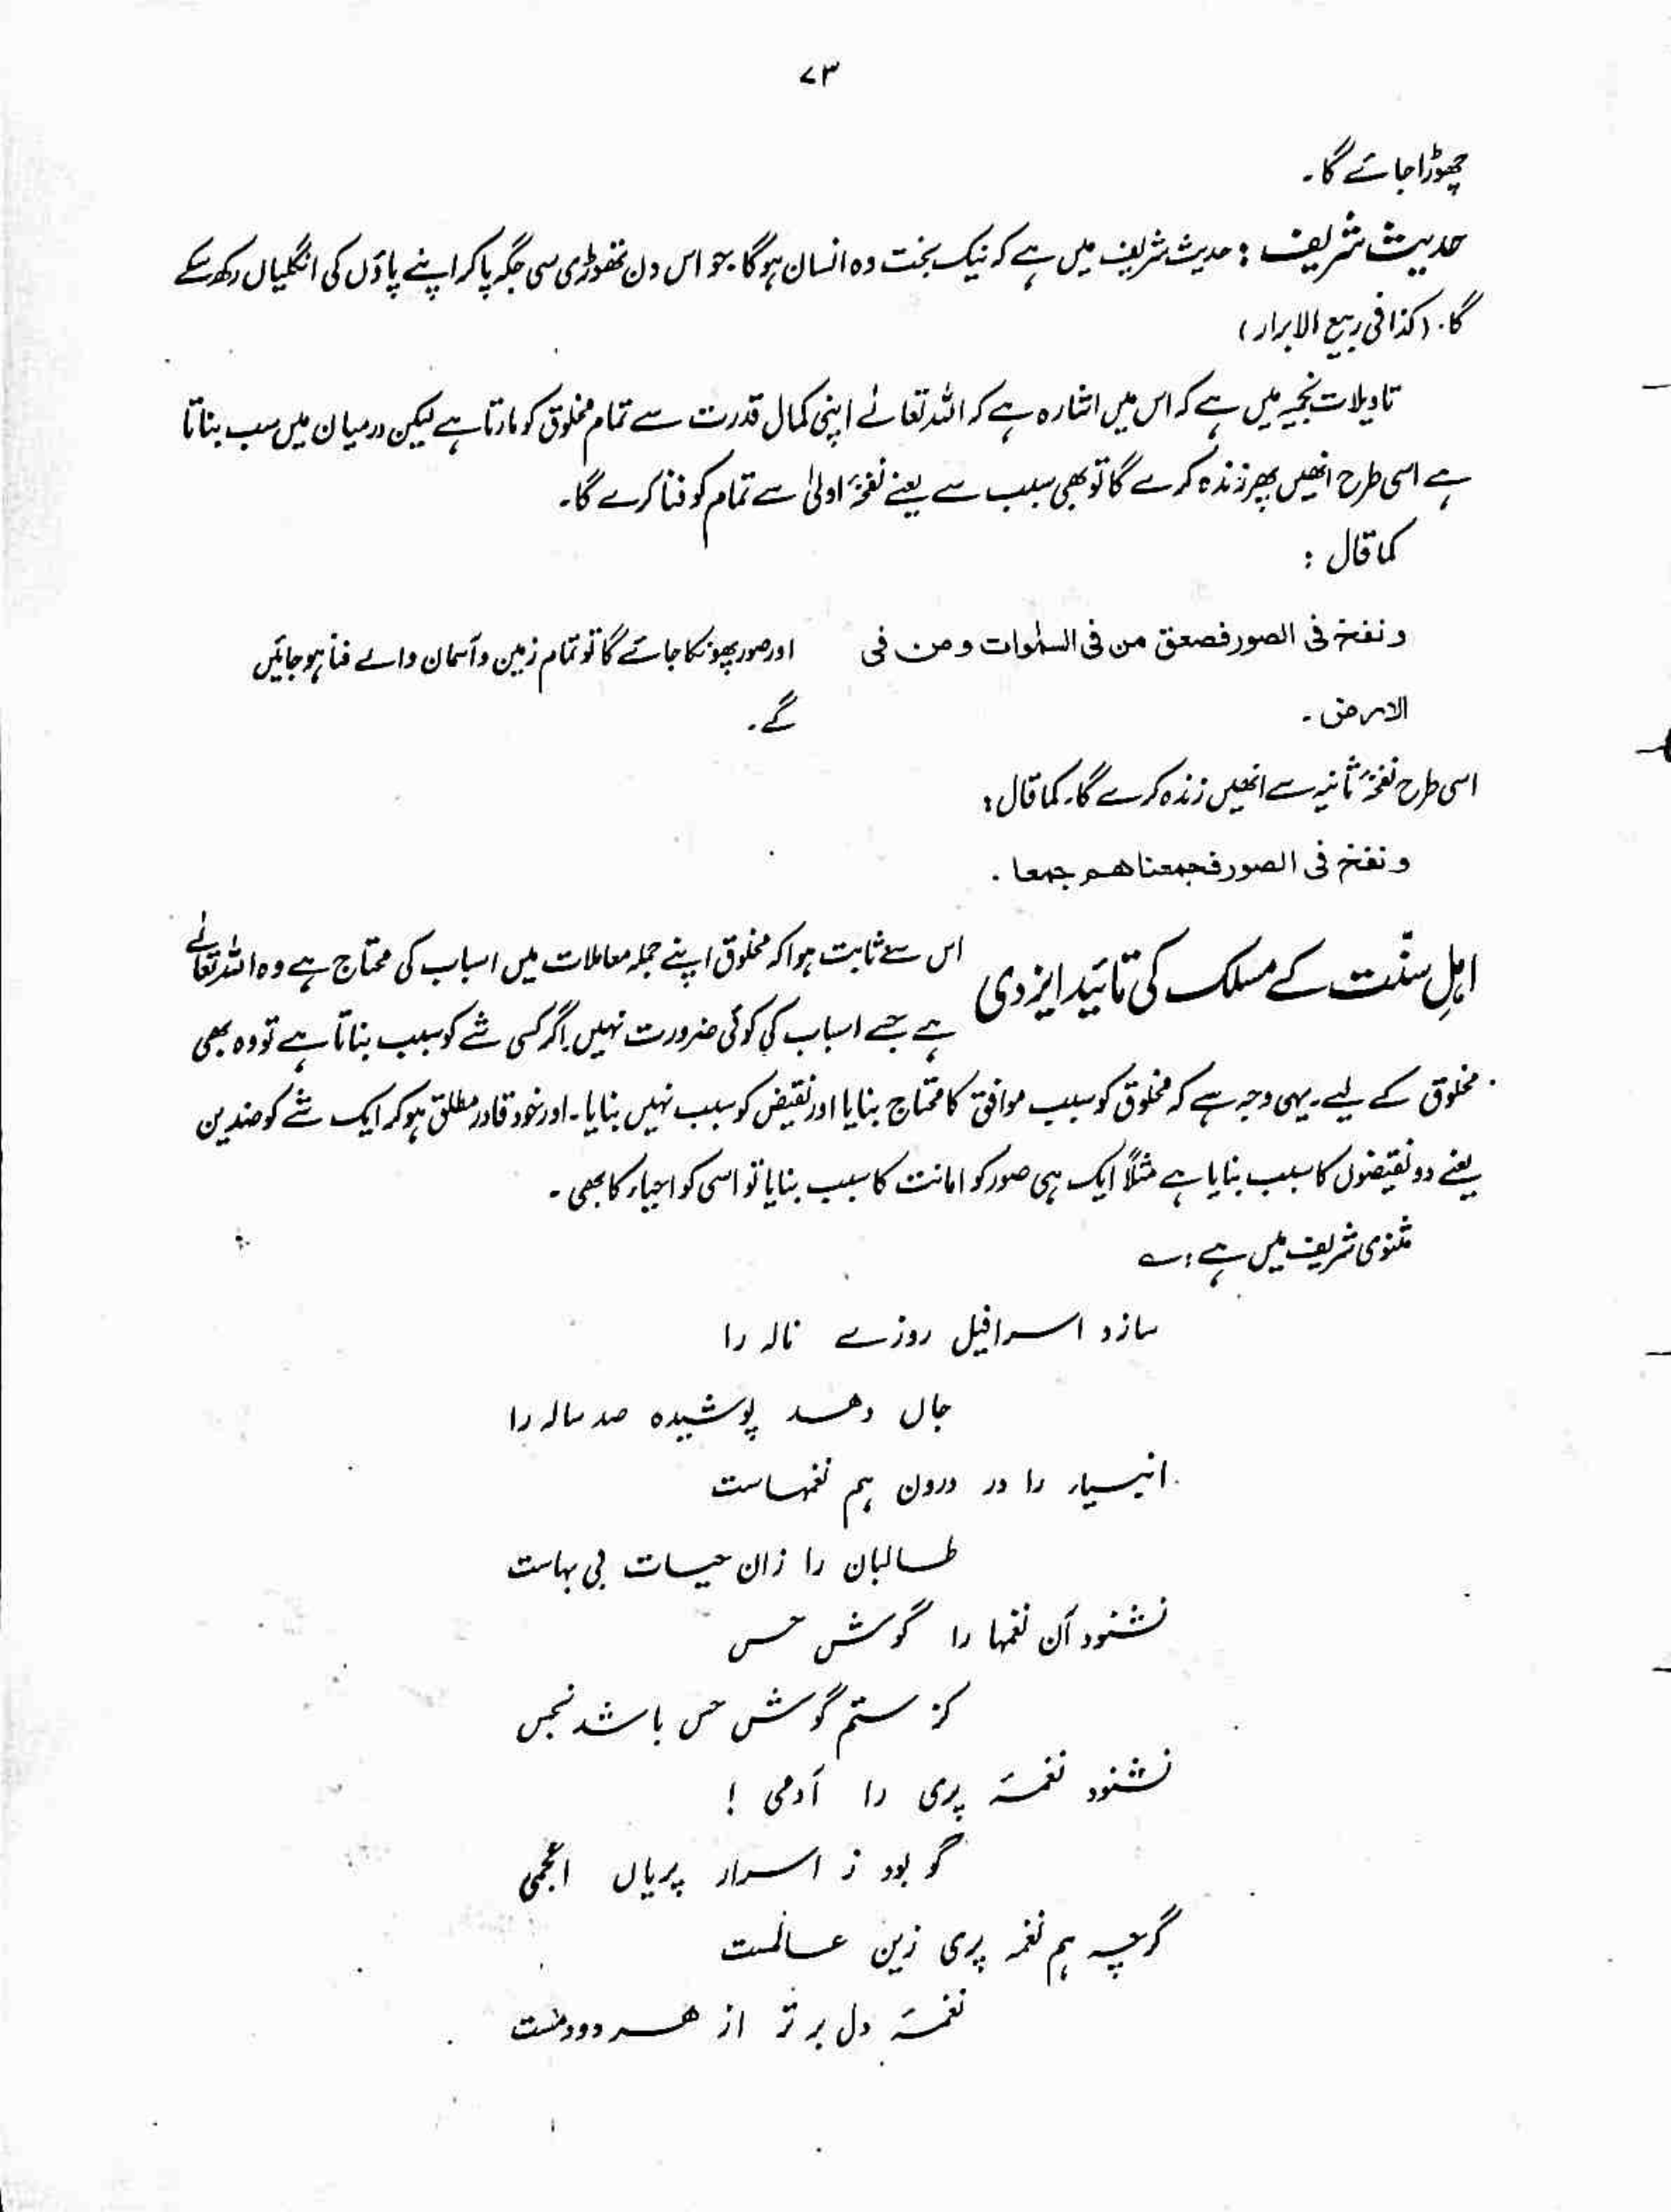 ۷۳
چھوڑا جائے گا۔
حدیث شریف : حدیث شریف میں ہے کہ نیک بخت وہ انسان ہوگا۔ جو اس دن تھوڑی سی جگہ پا کر اپنے پاؤں کی انگلیاں رکھ سکے
گا۔ (کذا فی ربیع الابرار)
تاویلات نجمیہ میں ہے کہ اس میں اشارہ ہے کہ اللہ تعالےٰ اپنی کمال قدرت سے تمام مخلوق کو مارتا ہے لیکن درمیان میں سبب بناتا
ہے اسی طرح انھیں پھر زندہ کرے گا تو بھی سبب سے یعنے نفخۂ اولیٰ سے تمام کو فنا کرے گا۔
کما قال :
و نفخ فی الصور فصعق من فی السمٰوات و من فی
الارض ۔
اور صور پھونکا جائے گا تو تمام زمین و آسمان والے فنا ہو جائیں
گے۔
اسی طرح نفخۂ ثانیہ سے انھیں زندہ کرے گا۔ کما قال :
و نفخ فی الصور فجمعناھم جمعا ۔
اہلِ سنّت کے مسلک کی تائید ایزدی
اس سے ثابت ہوا کہ مخلوق اپنے جملہ معاملات میں اسباب کی محتاج ہے وہ اللہ تعالےٰ
ہے جسے اسباب کی کوئی ضرورت نہیں۔ اگر کسی شے کو سبب بناتا ہے تو وہ بھی
مخلوق کے لیے۔ یہی وجہ ہے کہ مخلوق کو سبب موافق کا محتاج بنایا اور نقیض کو سبب نہیں بنایا۔ اور خود قادر مطلق ہو کر ایک شے کو ضدین
یعنے دو نقیضوں کا سبب بنایا ہے مثلاً ایک ہی صور کو امانت کا سبب بنایا تو اسی کو احیاء کا بھی ۔
مثنوی شریف میں ہے : ؎
سازد اسرافیل روزے نالہ را
جاں دھد پوشیدہ صد سالہ را
انبیاء را در درون ہم نغمہاست
طالبان را زان حیات بی بہاست
نشنود آن نغمہا را گوش حس
کز ستم گوش حس باشد نجس
نشنود نغمۂ پری را آدمی !
گو بود ز اسرار پریاں اعجمی
گرچہ ہم نغمہ پری زین عالمست
نغمۂ دل برتر از ھر دو دمست